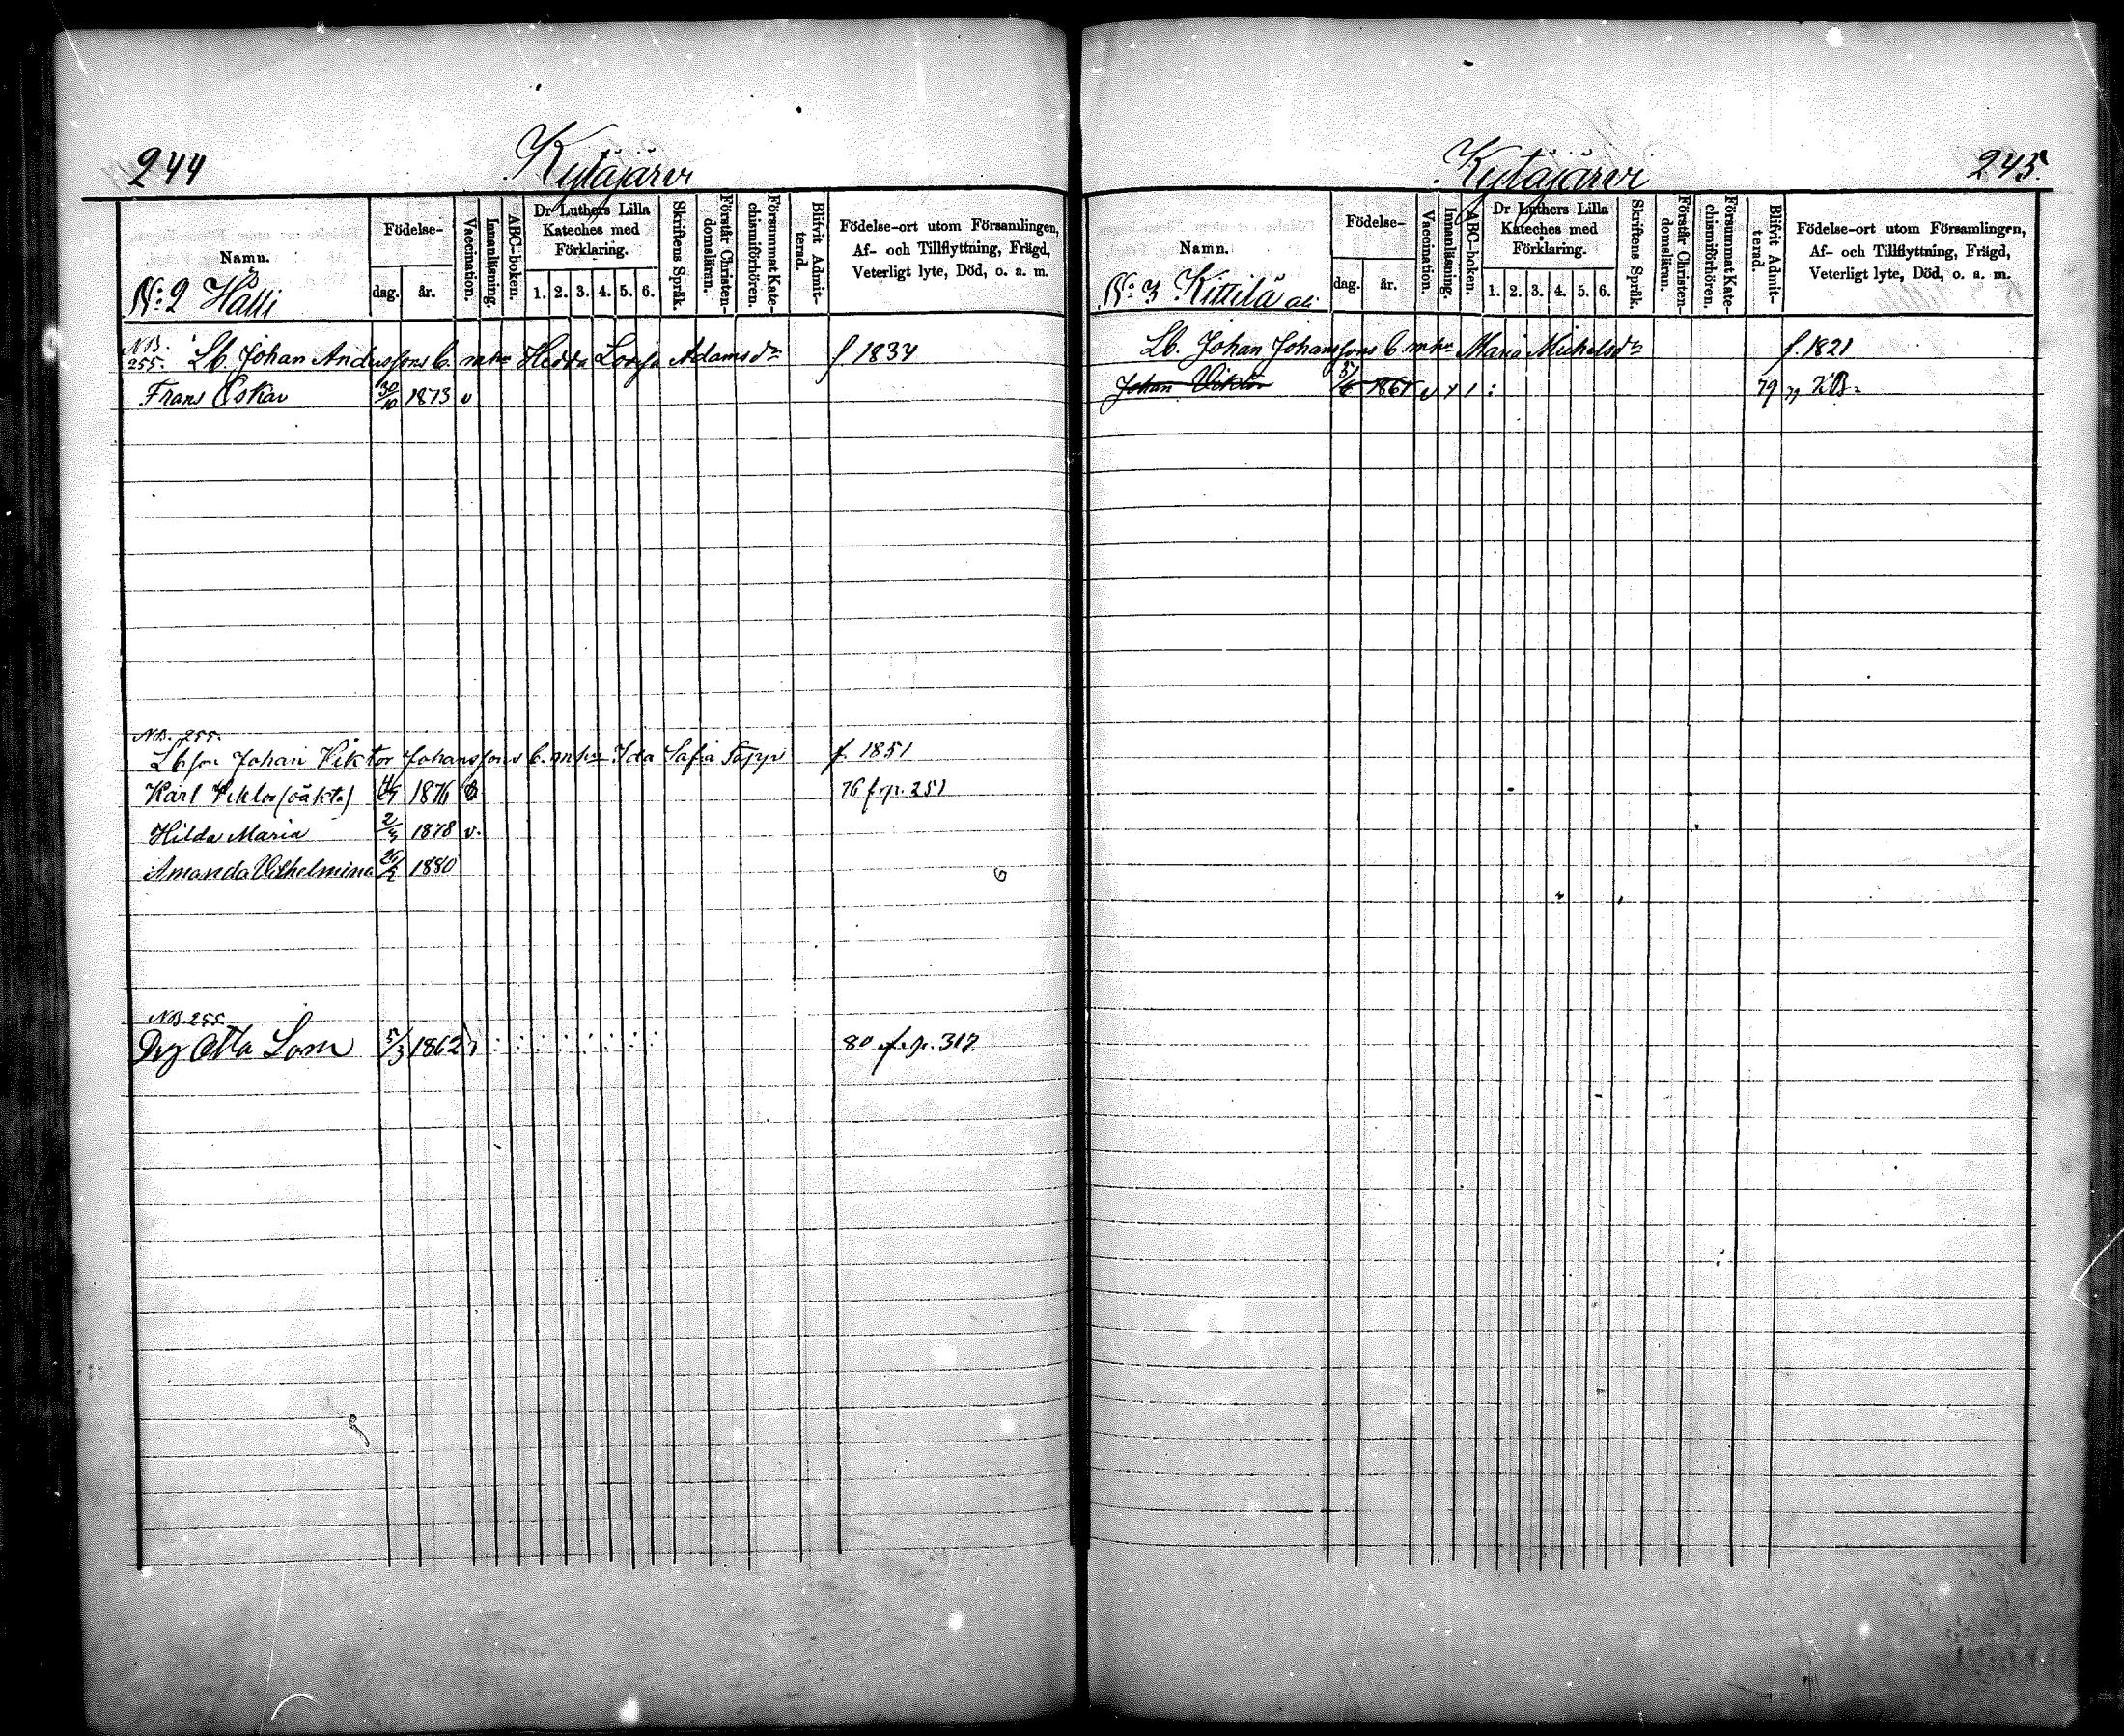 244
Kytäjärvi
Namn.
Födelse-
dag.
år.
Vaccination.
Innanläsning.
ABC-boken.
Dr Luthers Lilla
Kateches med
Förklaring.
1. 2. 3. 4. 5. 6.
Skriftens Språk.
Förstår Christen-
domsläran.
Försummat Kate-
chismiförhören.
Blifvit Admit-
terad.
Födelse-ort utom Församlingen,
Af- och Tillflyttning, Frägd,
Veterligt lyte, Död, o. a. m.
No: 2 Hälli
NB.
255. Lb. Johan Anderssons b. m. hu Hedda Lovisa Adamsdr f. 1834
Frans Oskar 30/10 1873 v
NB. 255.
Lbson Johan Viktor Johanssons b. m. hu Ida Sofia f. 1851
Karl Viktor (oäkta) 1876 76 f. p. 251
Hilda Maria 1878 v.
Amanda Vilhelmina 1880
NB. 255.
Otto 5/3 1862 80 f. p. 317.
245.
Kytäjärvi
Namn.
Födelse-
dag.
år.
Vaccination.
Innanläsning.
ABC-boken.
Dr Luthers Lilla
Kateches med
Förklaring.
1. 2. 3. 4. 5. 6.
Skriftens Språk.
Förstår Christen-
domsläran.
Försummat Kate-
chismiförhören.
Blifvit Admit-
terad.
Födelse-ort utom Församlingen,
Af- och Tillflyttning, Frägd,
Veterligt lyte, Död, o. a. m.
No: 3 Kittilä ali
Lb. Johan Johanssons b. m. hu Maria Michelsdr f. 1821
Johan Viktor 1861 v 79